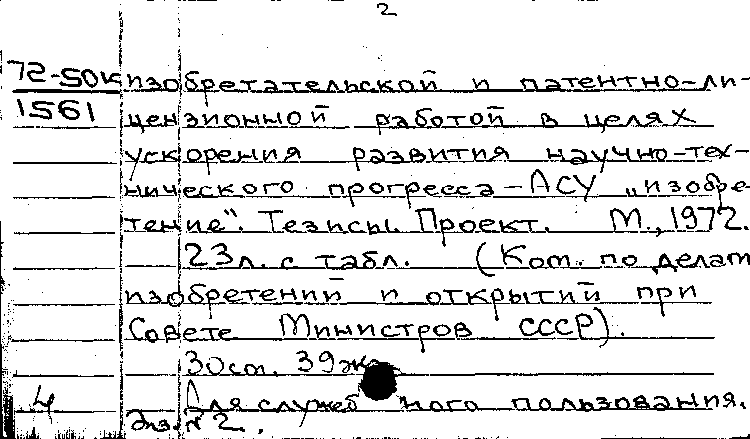 2
72-50к изобретательской и патентно-ли-
1561 цензионной работой в целях
ускорения развития научно-тех-
нического прогресса - АСУ „изобре-
тение". Тезисы. Проект. М., 1972.
23 л. с табл. (Ком. по делам
изобретений и открытий при
Совете Министров СССР).
30 см. 39 экз.
Для служебного пользования.
4 Экз. № 2.